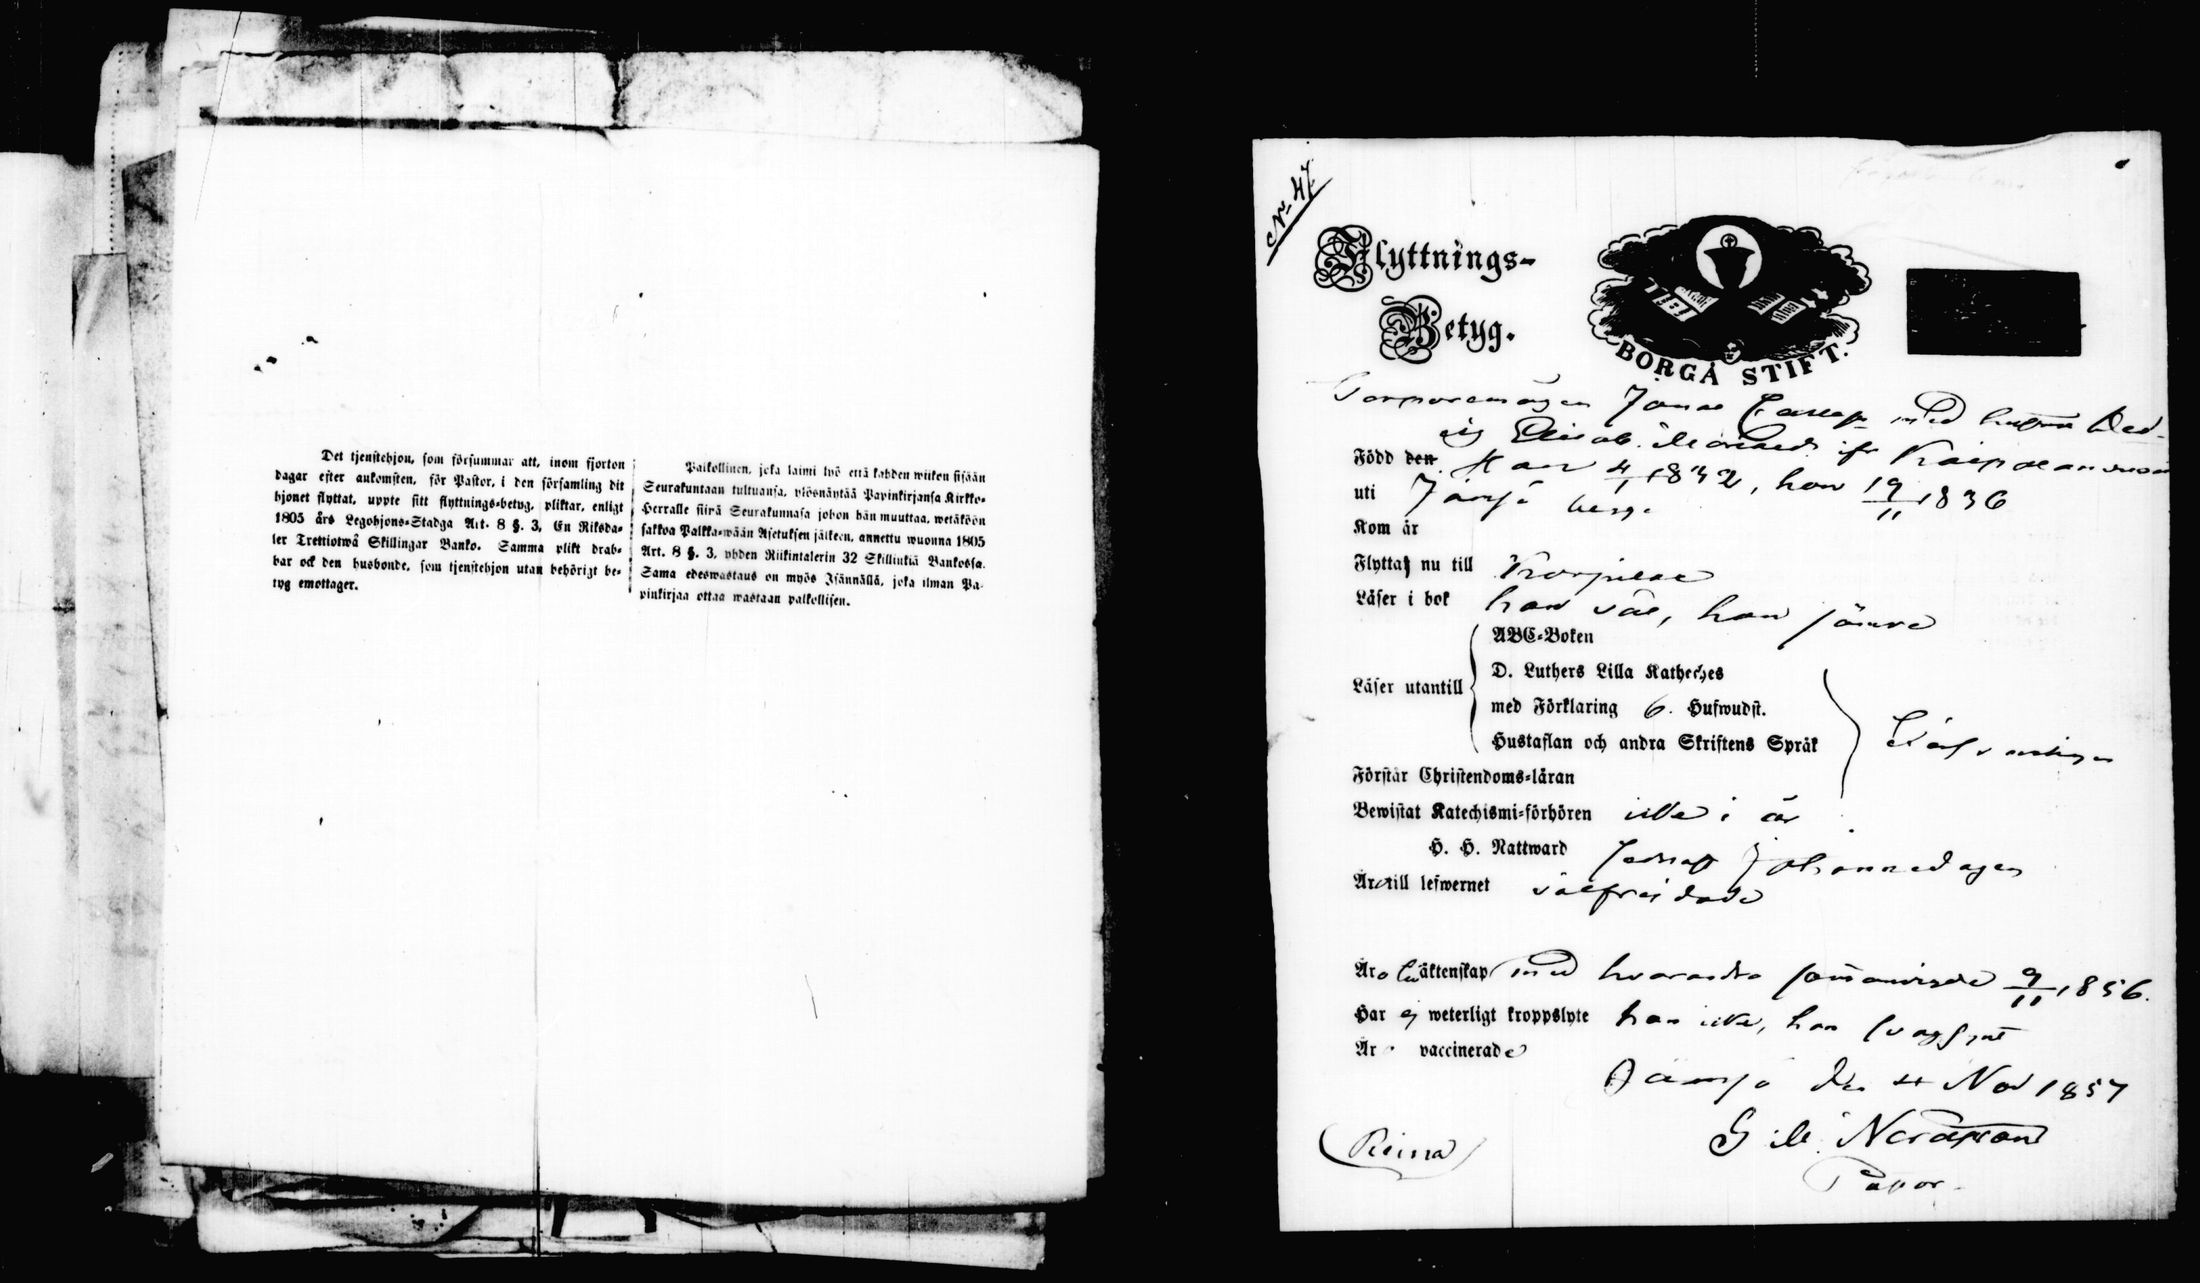 Det tjenstehjon, som försummar att, inom fjorton
dagar efter ankomsten, för Pastor, i den församling dit
hjonet flyttat, uppte sitt flyttnings-betyg, pliktar, enligt
1805 års Legohjons-Stadga Art. 8 §. 3, En Riksda-
ler Trettiotwå Skillingar Banko. Samma plikt drab-
bar ock den husbonde, som tjenstehjon utan behörigt be-
tyg emottager.
Palkollinen, joka laimi lyö että kahden wiikon sisään
Seurakuntaan tultuansa, ylösnäytää Papinkirjansa Kirkko-
Herralle siinä Seurakunnasa johon hän muuttaa, wetäköön
sakkoa Palkka-wään Asetuksen jälkeen, annettu wuonna 1805
Art. 8 §. 3, yhden Riikintalerin 32 Skillinkiä Bankossa.
Sama edeswastaus on myös Isännällä, joka ilman Pa-
pinkirjaa ottaa wastaan palkollisen.
No 47
Flyttnings-
Betyg.
BORGÅ STIFT.
Jonas med hustru Hed-
vig Elisab. ifr
Född den Han 4/1 1832, hon 19/11 1836
uti Jämsä
Kom år
Flyttat nu till Korpilax
Läser i bok han väl, hon
ABC-Boken
D. Luthers Lilla Katheches
Läser utantill
med Förklaring 6. Hufwudst.
Hustaflan och andra Skriftens Språk
Förstår Christendoms-läran
Bewistat Katechismi-förhören icke i år
H. H. Nattward sednast Johannedagen
Äro till lefwernet välfrejdade
Äro äktenskap med hvarandra sammanvigde 9/11 1856.
Har ej weterligt kroppslyte han icke, hon svagsynt
Är vaccinerade
Jämsä den 4 Nov 1857
Pastor.